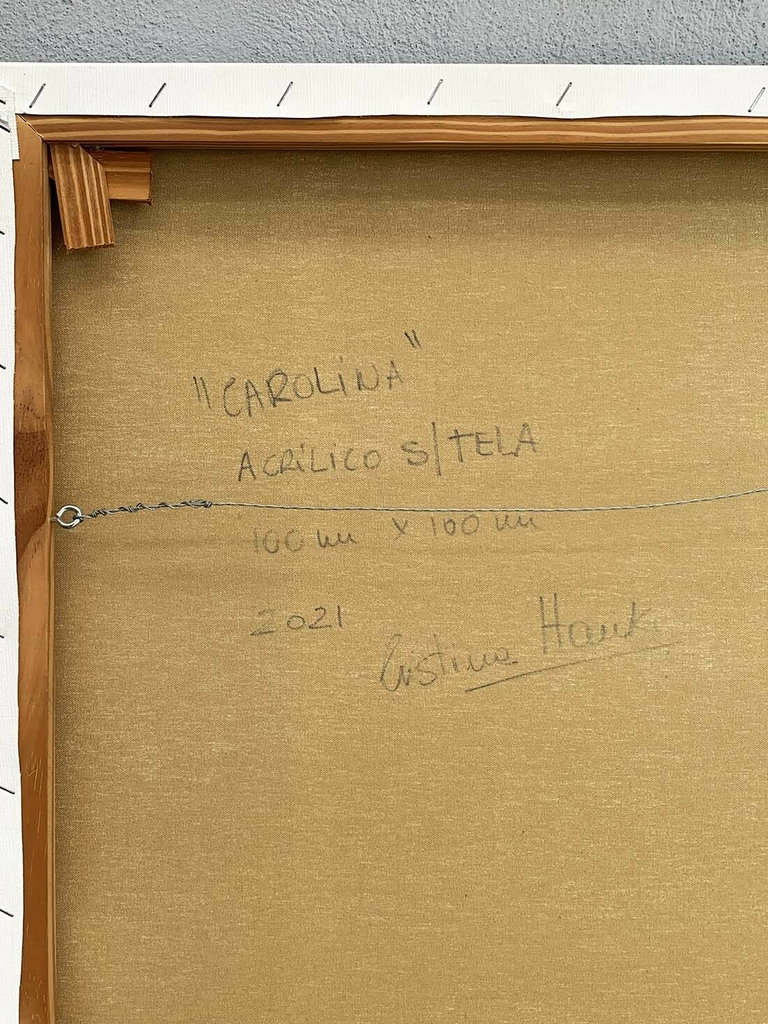 "CAROLINA"
ACRÍLICO S/TELA
100 cm x 100 cm
2021
Cristina Hauk